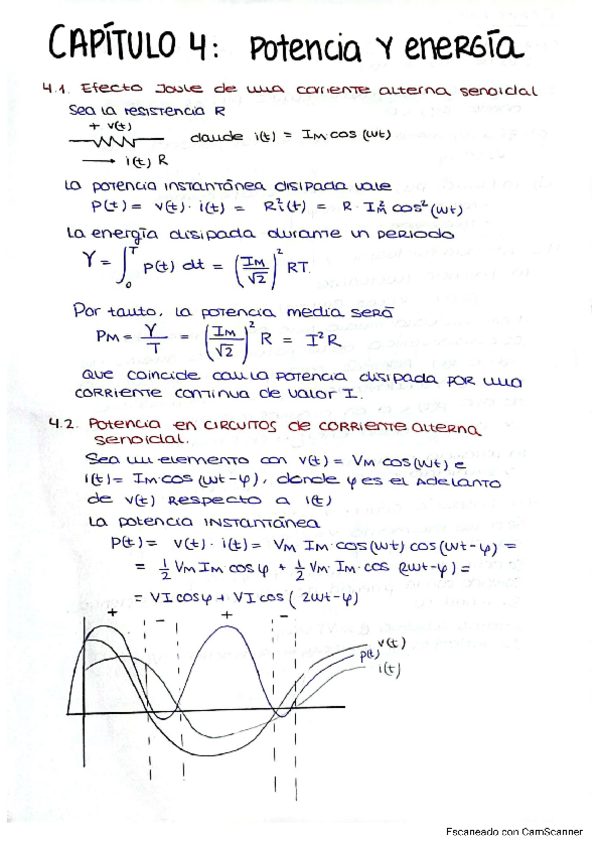 CAPÍTULO 4: POTENCIA Y ENERGÍA
4.1. Efecto Joule de una corriente alterna senoidal
Sea la resistencia R
+ v(t)
donde i(t) = I_M cos (wt)
→ i(t) R
La potencia instantánea disipada vale
P(t) = v(t) · i(t) = R i²(t) = R · I_M² cos² (wt)
La energía disipada durante un periodo
Y = ∫₀ᵀ p(t) dt = (I_M/√2)² RT.
Por tanto, la potencia media será
P_M = Y/T = (I_M/√2)² R = I²R
que coincide con la potencia disipada por una
corriente continua de valor I.
4.2. Potencia en circuitos de corriente alterna
senoidal.
Sea un elemento con v(t) = V_M cos(wt) e
i(t) = I_M · cos (wt - φ), donde φ es el adelanto
de v(t) respecto a i(t)
La potencia instantánea
P(t) = v(t) · i(t) = V_M I_M · cos(wt) cos(wt - φ) =
= 1/2 V_M I_M cos φ + 1/2 V_M · I_M · cos (2wt - φ) =
= VI cos φ + VI cos ( 2wt - φ)
+ - + -
v(t)
p(t)
i(t)
Escaneado con CamScanner